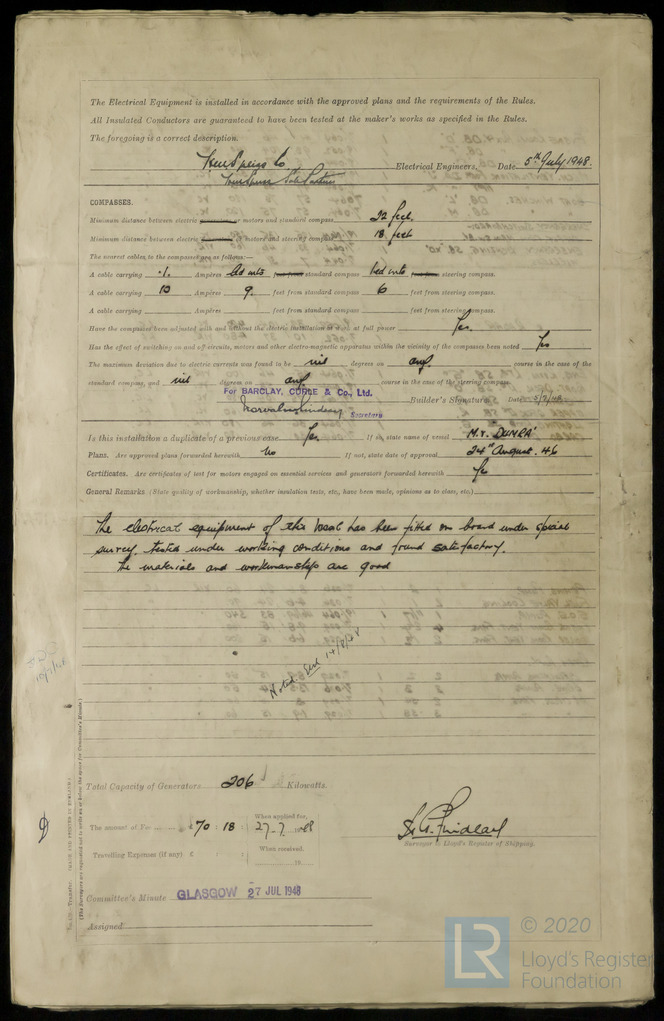 The Electrical Equipment is installed in accordance with the approved plans and the requirements of the Rules.
All Insulated Conductors are guaranteed to have been tested at the maker's works as specified in the Rules.
The foregoing is a correct description.
Electrical Engineers. Date 5th July 1948.
COMPASSES.
Minimum distance between electric or motors and standard compass 22 feet.
Minimum distance between electric or motors and steering compass 18 feet
The nearest cables to the compasses are as follows:—
A cable carrying .1 Ampères led into standard compass led into steering compass.
A cable carrying 10 Ampères 9 feet from standard compass 6 feet from steering compass.
A cable carrying Ampères feet from standard compass feet from steering compass.
Have the compasses been adjusted with and without the electric installation at work at full power Yes.
Has the effect of switching on and off circuits, motors and other electro-magnetic apparatus within the vicinity of the compasses been noted Yes
The maximum deviation due to electric currents was found to be nil degrees on any course in the case of the
standard compass, and nil degrees on any course in the case of the steering compass.
For BARCLAY, CURLE & Co., Ltd.
Secretary Builder's Signature. Date 5/7/48.
Is this installation a duplicate of a previous case Yes. If so, state name of vessel M.V. "DUNRA"
Plans. Are approved plans forwarded herewith No If not, state date of approval 24th August. 46
Certificates. Are certificates of test for motors engaged on essential services and generators forwarded herewith Yes
General Remarks (State quality of workmanship, whether insulation tests, etc., have been made, opinions as to class, etc.)
The electrical equipment of this vessel has been fitted on board under special
survey, tested under working conditions and found satisfactory.
The materials and workmanship are good
Noted 14/8/48
Total Capacity of Generators 206 Kilowatts.
The amount of Fee £ 70 : 18 When applied for, 27-7-1948
Surveyor to Lloyd's Register of Shipping.
Travelling Expenses (if any) £ When received,
Committee's Minute GLASGOW 27 JUL 1948
Assigned
© 2020
LR Lloyd's Register
Foundation